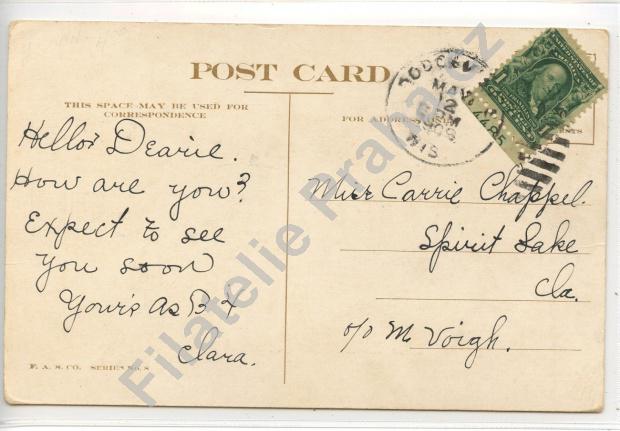 POST CARD
THIS SPACE MAY BE USED FOR
CORRESPONDENCE
FOR ADDRESS
Hello Dearie.
How are you?
Expect to see
you soon
Yours As B 4
Clara.
Miss Carrie Chappel.
Spirit Lake
Ia.
c/o M. Voigh.
DODGEV
MAY
12
M
1908
WIS
F. A. S. CO. SERIES NO. 8
Filatelie Praha.cz